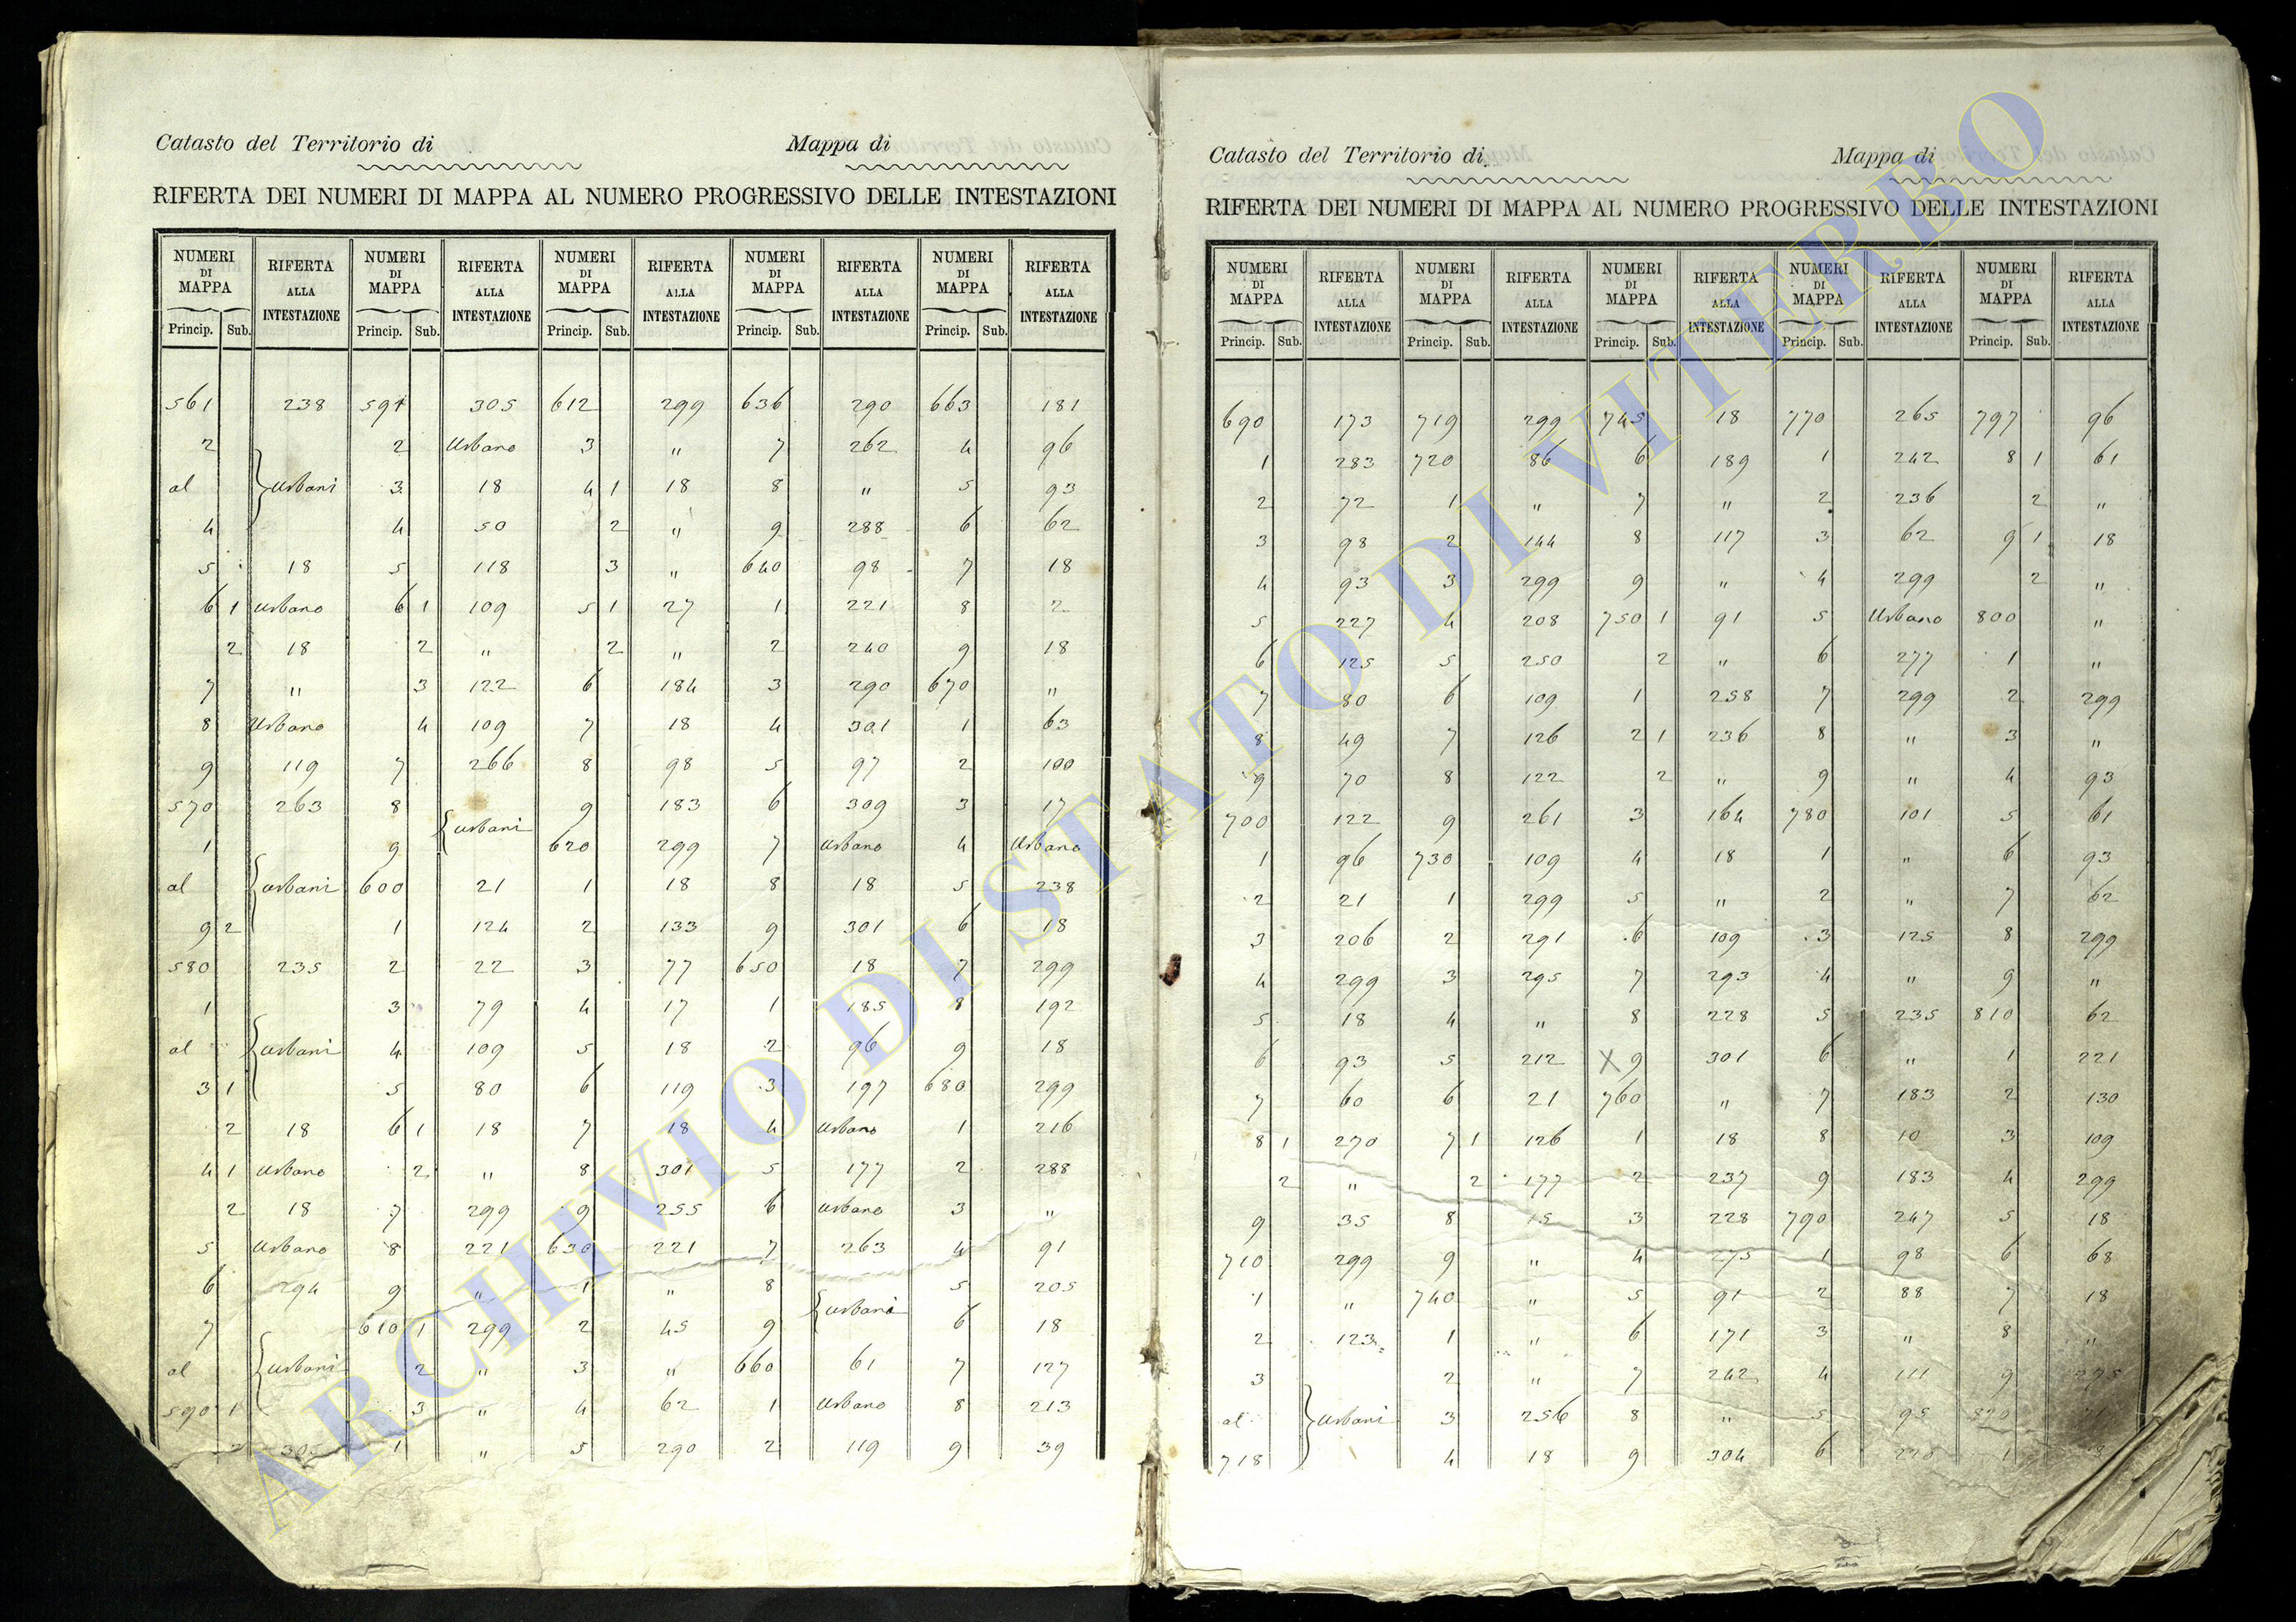 Catasto del Territorio di Mappa di
RIFERTA DEI NUMERI DI MAPPA AL NUMERO PROGRESSIVO DELLE INTESTAZIONI
NUMERI DI MAPPA RIFERTA ALLA INTESTAZIONE NUMERI DI MAPPA RIFERTA ALLA INTESTAZIONE NUMERI DI MAPPA RIFERTA ALLA INTESTAZIONE NUMERI DI MAPPA RIFERTA ALLA INTESTAZIONE NUMERI DI MAPPA RIFERTA ALLA INTESTAZIONE
Princip. Sub. Princip. Sub. Princip. Sub. Princip. Sub. Princip. Sub.
561 238 591 305 612 299 636 290 663 181
2 2 Urbano 3 " 7 262 4 96
al Urbani 3 18 4 1 18 8 " 5 93
4 4 50 2 " 9 288 6 62
5 18 5 118 3 " 640 98 7 18
6 1 Urbano 6 1 109 5 1 27 1 221 8 2
2 18 2 " 2 " 2 240 9 18
7 " 3 122 6 184 3 290 670 "
8 Urbano 4 109 7 18 4 301 1 63
9 119 7 266 8 98 5 97 2 100
570 263 8 Urbani 9 183 6 309 3 17
1 9 620 299 7 Urbano 4 Urbano
al Urbani 600 21 1 18 8 18 5 238
9 2 1 124 2 133 9 301 6 18
580 235 2 22 3 77 650 18 7 299
1 3 79 4 17 1 185 8 192
al Urbani 4 109 5 18 2 96 9 18
3 1 5 80 6 119 3 197 680 299
2 18 6 1 18 7 18 4 Urbano 1 216
4 1 Urbano 2 " 8 301 5 177 2 288
2 18 7 299 9 255 6 Urbano 3 "
5 Urbano 8 221 630 221 7 263 4 91
6 294 9 " 1 " 8 Urbani 5 205
7 610 1 299 2 45 9 6 18
al Urbani 2 " 3 " 660 61 7 127
590 1 3 " 4 62 1 Urbano 8 213
2 305 1 " 5 290 2 119 9 39
Catasto del Territorio di Mappa di
RIFERTA DEI NUMERI DI MAPPA AL NUMERO PROGRESSIVO DELLE INTESTAZIONI
NUMERI DI MAPPA RIFERTA ALLA INTESTAZIONE NUMERI DI MAPPA RIFERTA ALLA INTESTAZIONE NUMERI DI MAPPA RIFERTA ALLA INTESTAZIONE NUMERI DI MAPPA RIFERTA ALLA INTESTAZIONE NUMERI DI MAPPA RIFERTA ALLA INTESTAZIONE
Princip. Sub. Princip. Sub. Princip. Sub. Princip. Sub. Princip. Sub.
690 173 719 299 745 18 770 265 797 96
1 283 720 86 6 189 1 242 8 1 61
2 72 1 " 7 " 2 236 2 "
3 98 2 144 8 117 3 62 9 1 18
4 93 3 299 9 " 4 299 2 "
5 227 4 208 750 1 91 5 Urbano 800 "
6 125 5 250 2 " 6 277 1 "
7 80 6 109 1 258 7 299 2 299
8 49 7 126 2 1 236 8 " 3 "
9 70 8 122 2 " 9 " 4 93
700 122 9 261 3 164 780 101 5 61
1 96 730 109 4 18 1 " 6 93
2 21 1 299 5 " 2 " 7 62
3 206 2 291 6 109 3 125 8 299
4 299 3 295 7 293 4 " 9 "
5 18 4 " 8 228 5 235 810 62
6 93 5 212 X 9 301 6 " 1 221
7 60 6 21 760 " 7 183 2 130
8 1 270 7 1 126 1 18 8 10 3 109
2 " 2 177 2 237 9 183 4 299
9 35 8 15 3 228 790 247 5 18
710 299 9 " 4 275 1 98 6 68
1 " 740 " 5 91 2 88 7 18
2 123 1 " 6 171 3 " 8 "
3 2 " 7 242 4 111 9 275
al Urbani 3 256 8 " 5 95 820
718 4 18 9 304 6 1
ARCHIVIO DI STATO DI VITERBO